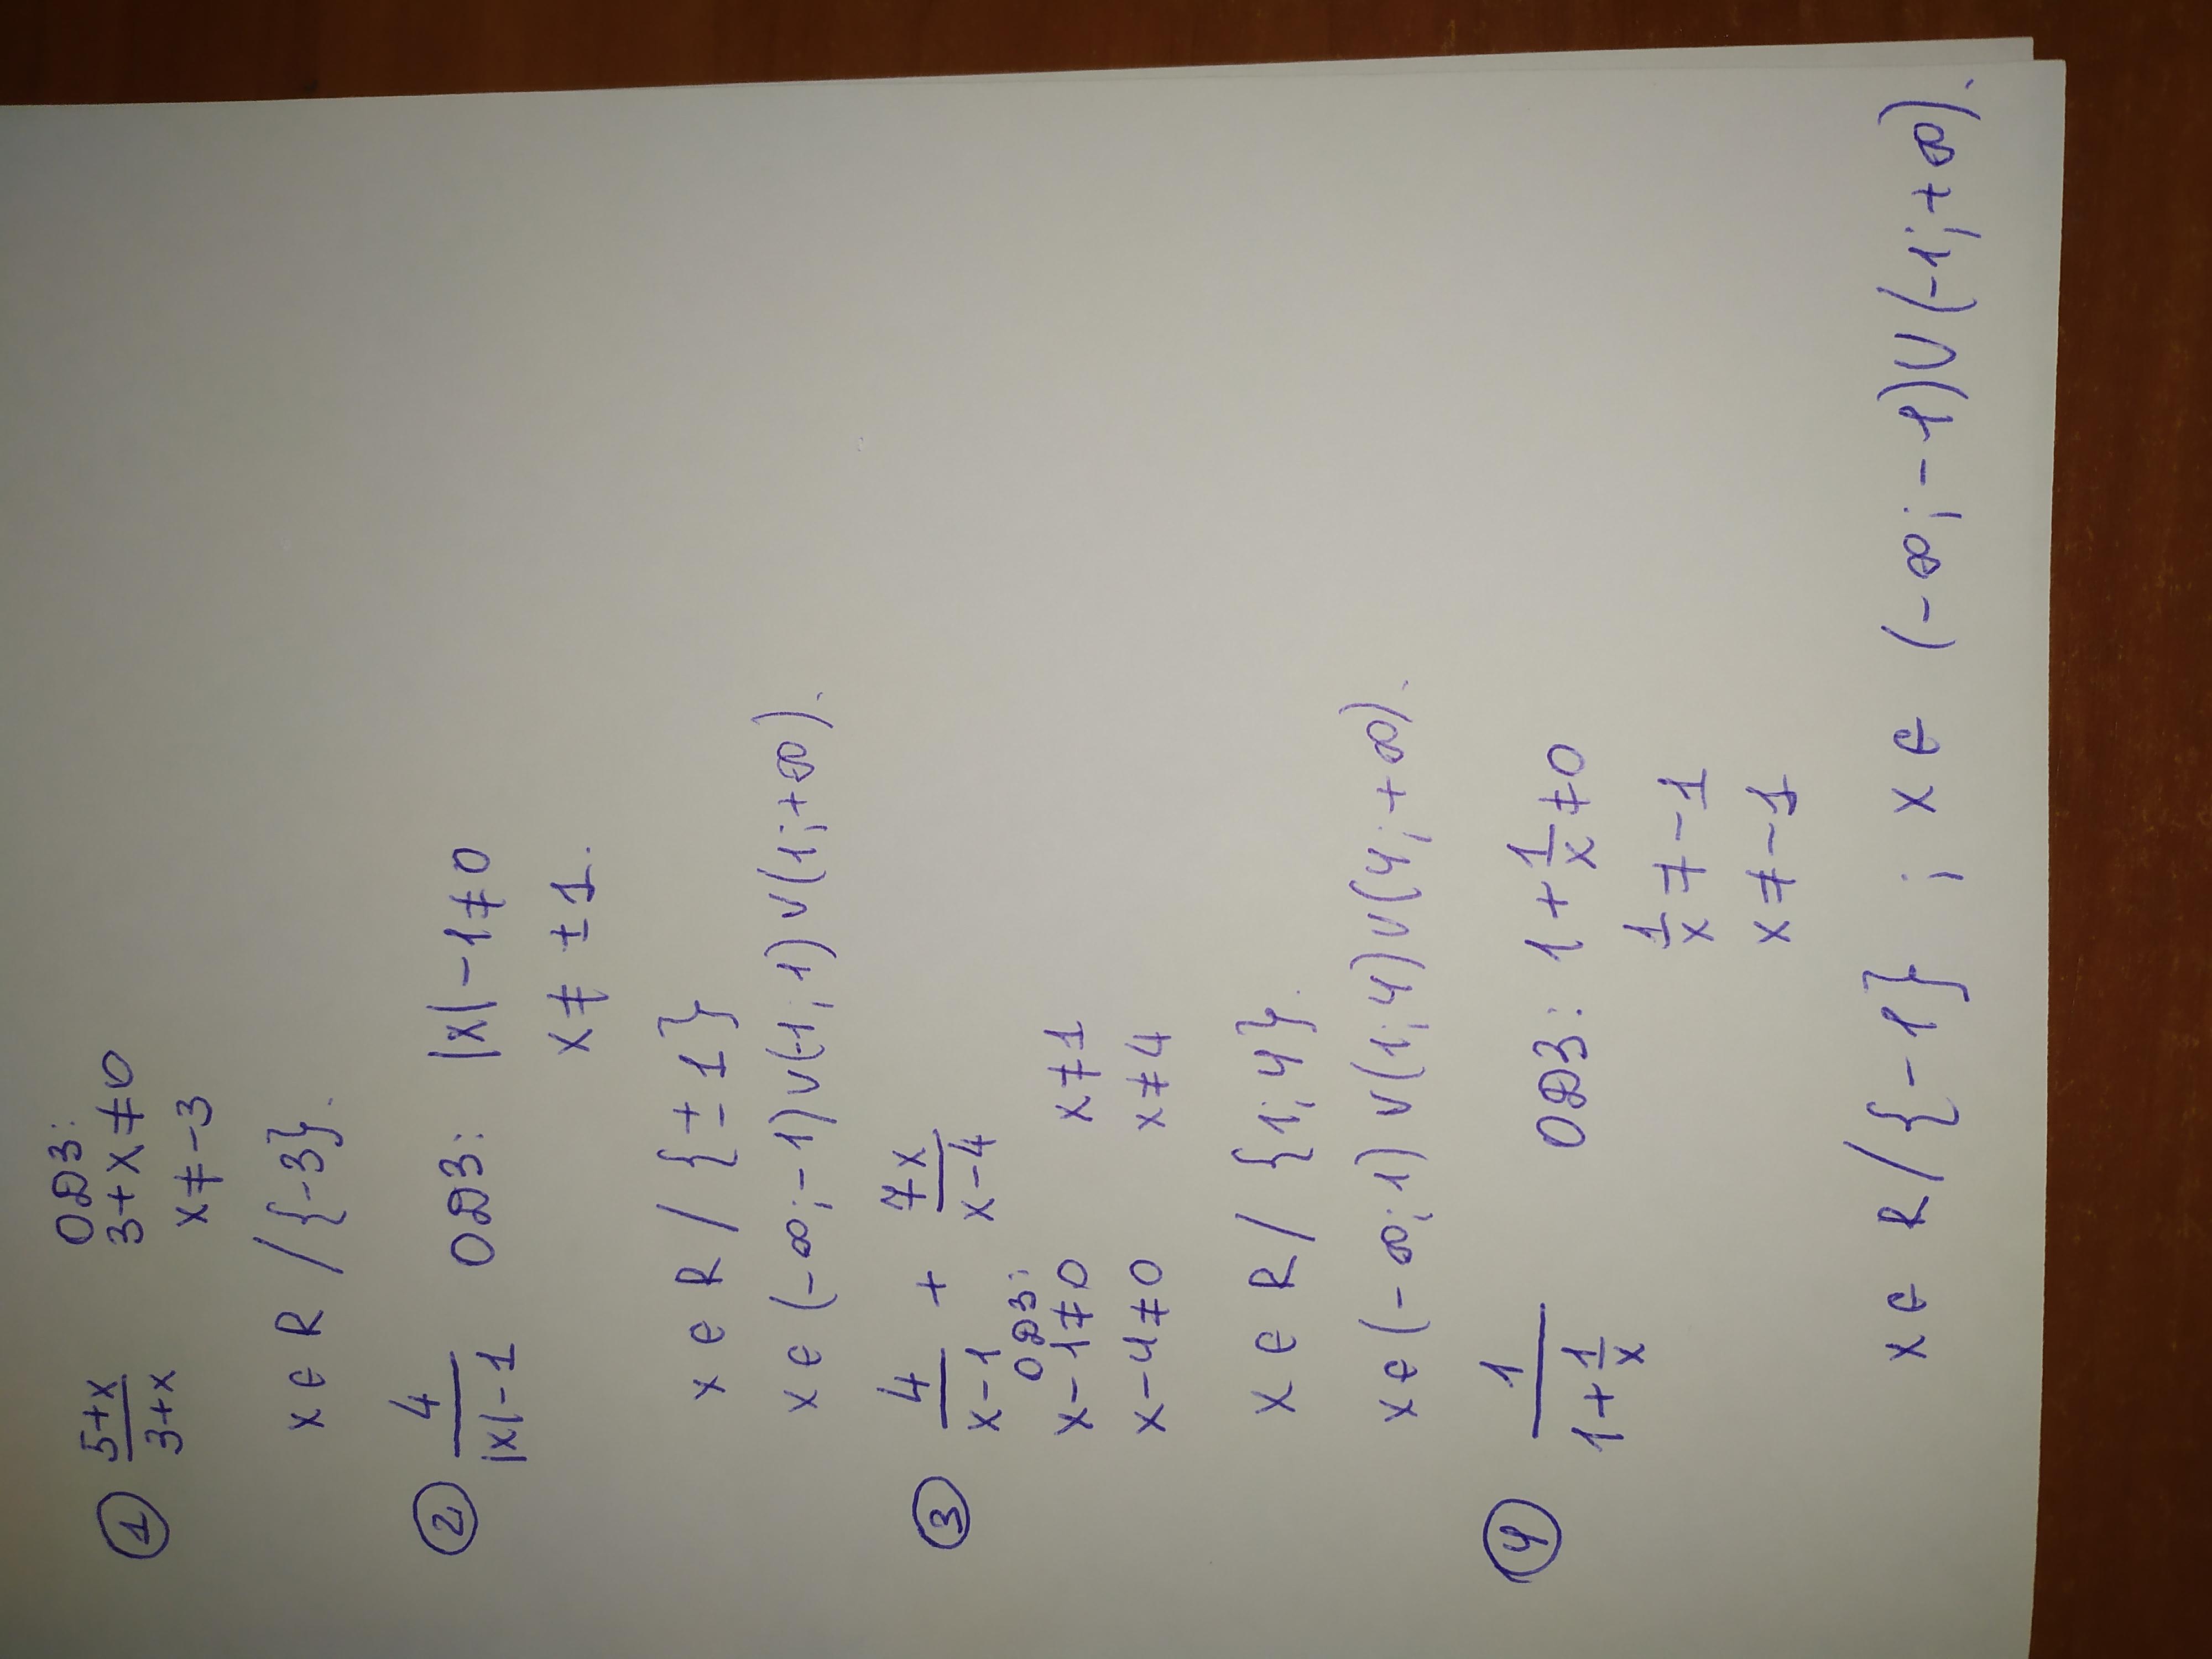 ① (5+x)/(3+x) ОДЗ:
3+x≠0
x≠-3
x∈R/{-3}.
② 4/(|x|-1) ОДЗ: |x|-1≠0
x≠±1.
x∈R/{±1}
x∈(-∞;-1)∪(-1;1)∪(1;+∞).
③ 4/(x-1) + 7x/(x-4)
ОДЗ:
x-1≠0 x≠1
x-4≠0 x≠4
x∈R/{1;4}.
x∈(-∞;1)∪(1;4)∪(4;+∞).
④ 1/(1+1/x) ОДЗ: 1+1/x≠0
1/x≠-1
x≠-1
x∈R/{-1}; x∈(-∞;-1)∪(-1;+∞).